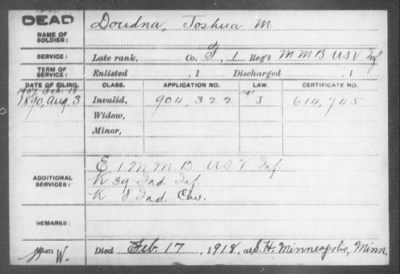 DEAD
NAME OF SOLDIER: Doudna, Joshua M
SERVICE: Late rank, Co. F, 1 Reg't M M B U S V Inf
TERM OF SERVICE: Enlisted , 1 Discharged , 1
DATE OF FILING. CLASS. APPLICATION NO. LAW. CERTIFICATE NO.
1890, Aug. 3 Invalid, 904,322 J 614,745
Widow,
Minor,
ADDITIONAL SERVICES: E 1 M M B U S V Inf
K 39 Ind. Inf.
K 8 Ind. Cav.
REMARKS:
W. Died Feb 17, 1918, at S.H. Minneapolis, Minn.